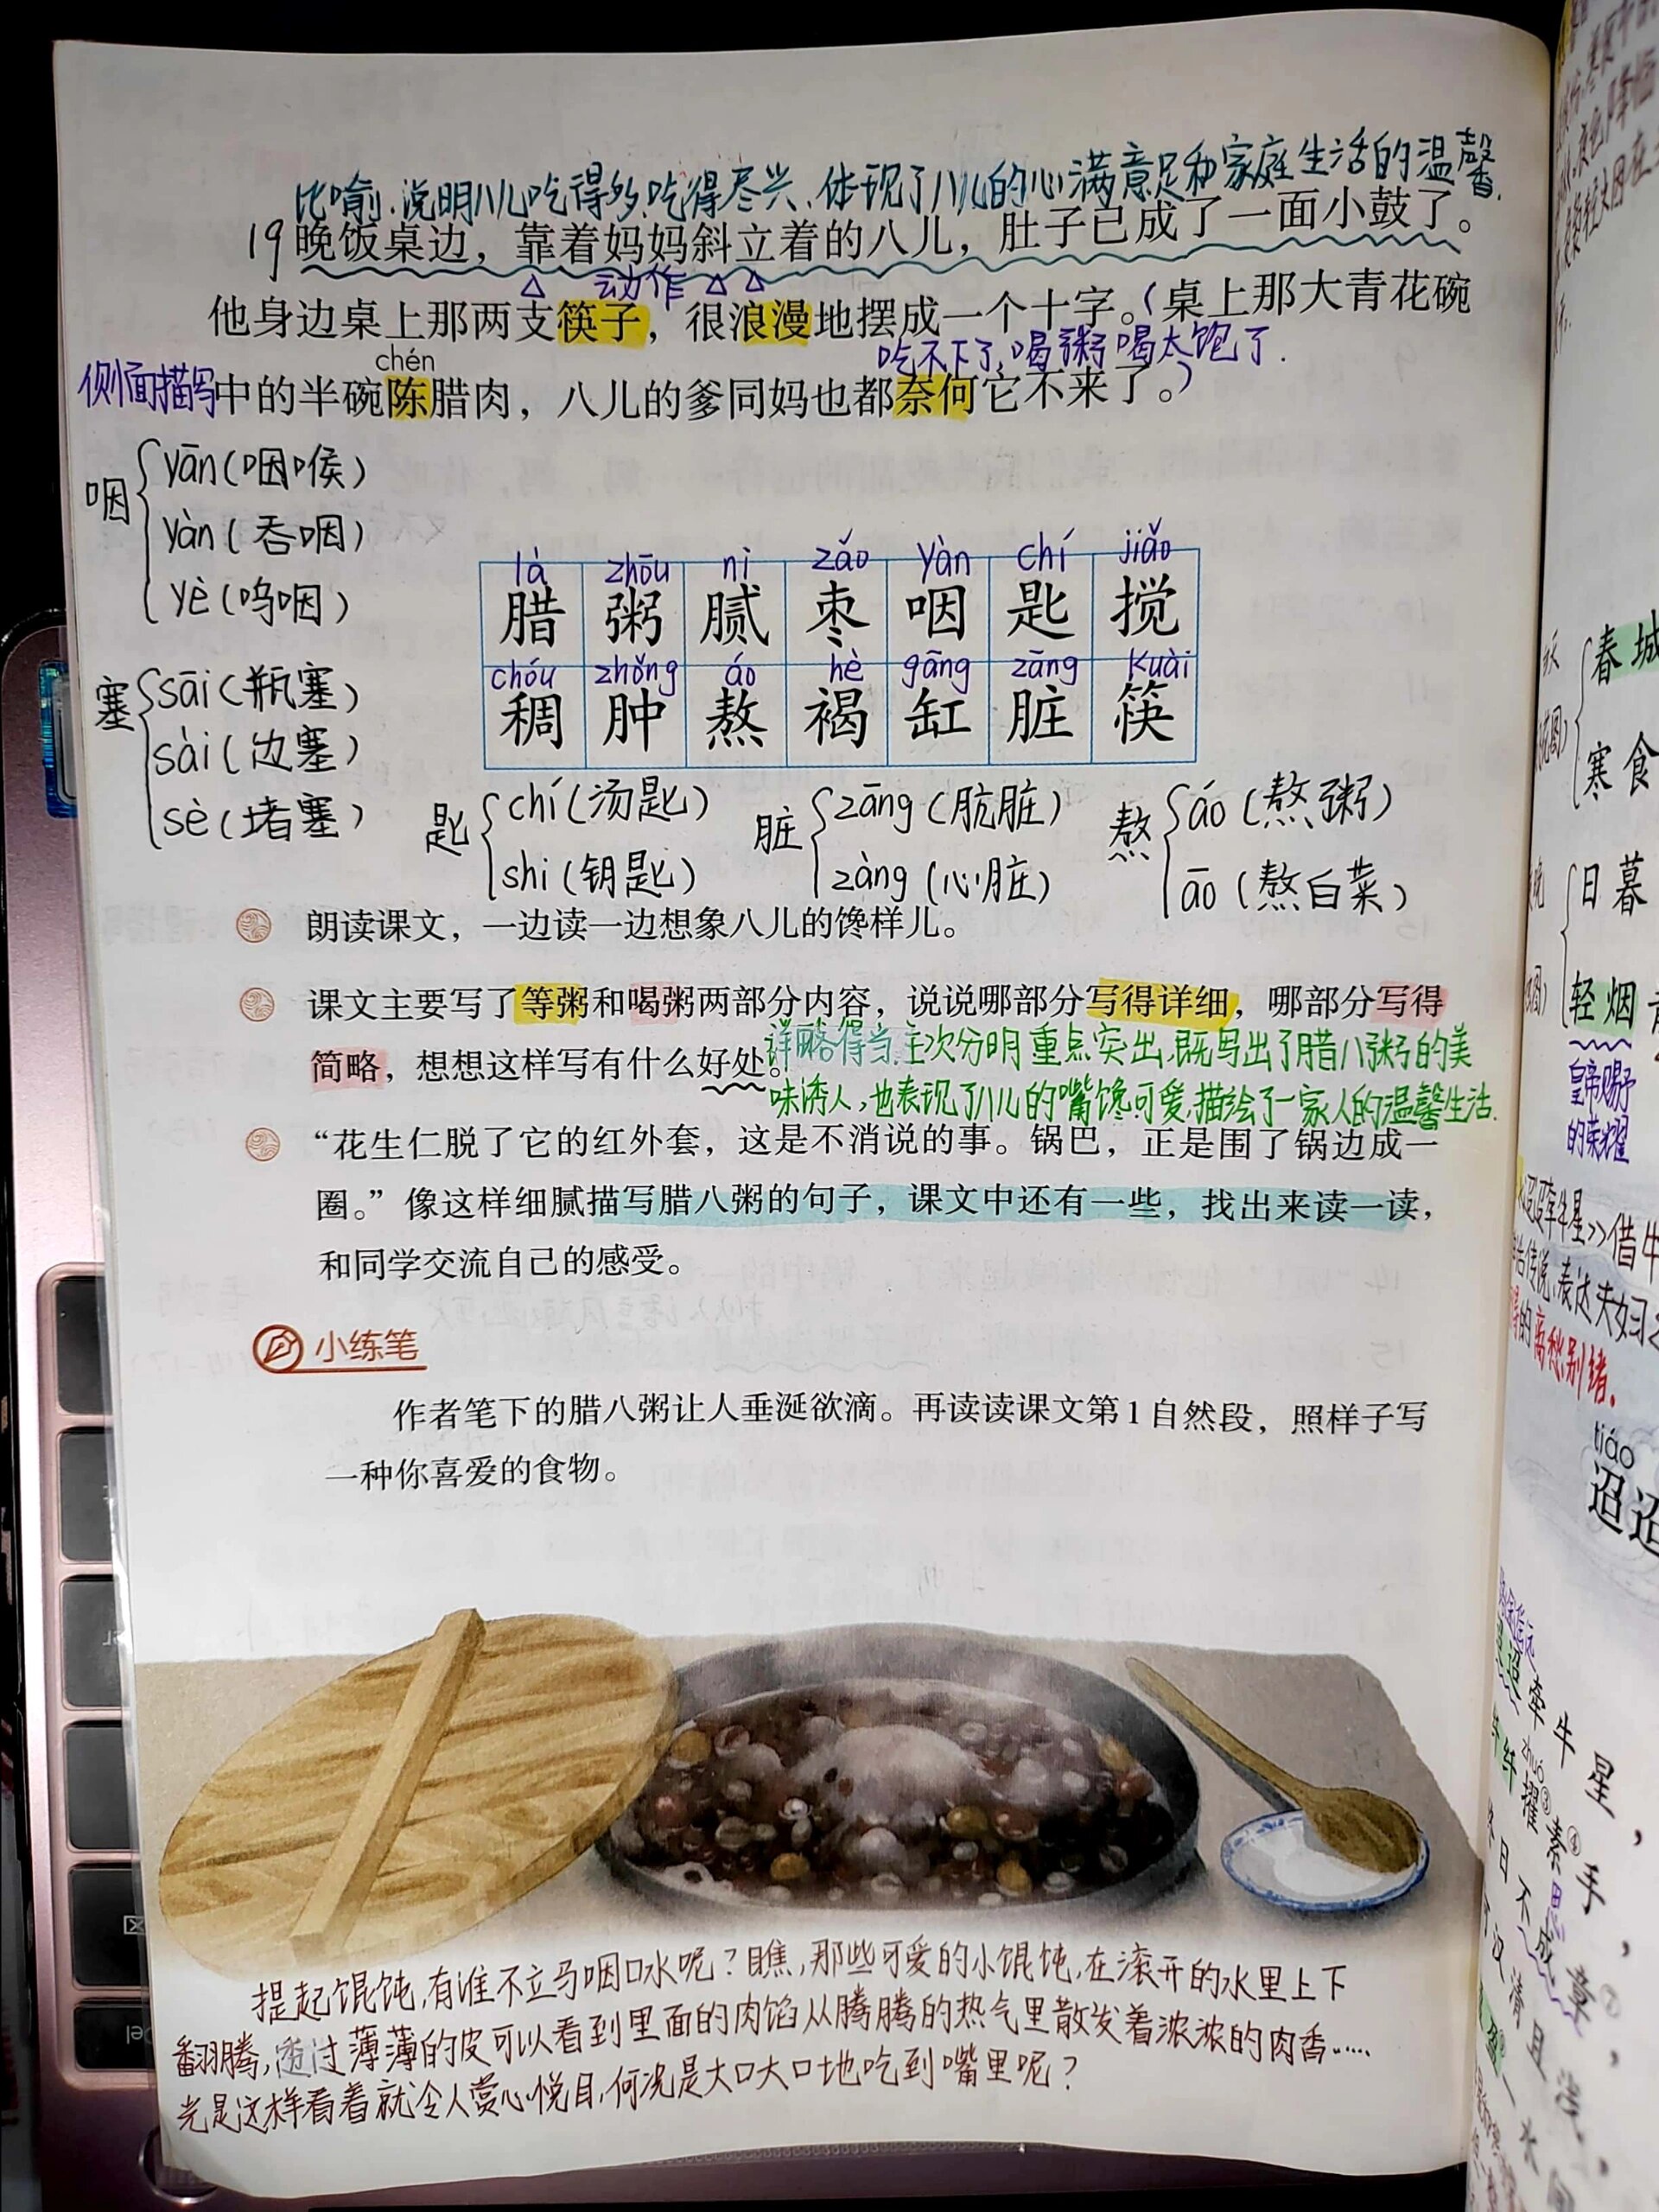 比喻.说明八儿吃得多.吃得尽兴、体现了八儿的心满意足和家庭生活的温馨.
19晚饭桌边，靠着妈妈斜立着的八儿，肚子已成了一面小鼓了。
动作
他身边桌上那两支筷子，很浪漫地摆成一个十字。(桌上那大青花碗
chén
吃不下了,喝粥喝太饱了.
侧面描写
中的半碗陈腊肉，八儿的爹同妈也都奈何它不来了。)
咽
yān(咽喉)
yàn(吞咽)
yè(呜咽)
là zhōu nì zǎo yàn chí jiǎo
腊 粥 腻 枣 咽 匙 搅
chóu zhǒng áo hè gāng zāng kuài
稠 肿 熬 褐 缸 脏 筷
塞
sāi(瓶塞)
sài(边塞)
sè(堵塞)
匙
chí(汤匙)
shi(钥匙)
脏
zāng(肮脏)
zàng(心脏)
熬
áo(熬粥)
āo(熬白菜)
朗读课文，一边读一边想象八儿的馋样儿。
课文主要写了等粥和喝粥两部分内容，说说哪部分写得详细，哪部分写得
简略，想想这样写有什么好处。
详略得当.主次分明.重点突出.既写出了腊八粥的美
味诱人,也表现了八儿的嘴馋可爱.描绘了一家人的温馨生活.
“花生仁脱了它的红外套，这是不消说的事。锅巴，正是围了锅边成一
圈。”像这样细腻描写腊八粥的句子，课文中还有一些，找出来读一读，
和同学交流自己的感受。
小练笔
作者笔下的腊八粥让人垂涎欲滴。再读读课文第1自然段，照样子写
一种你喜爱的食物。
提起馄饨,有谁不立马咽口水呢？瞧,那些可爱的小馄饨,在滚开的水里上下
翻腾,透过薄薄的皮可以看到里面的肉馅从腾腾的热气里散发着浓浓的肉香……
光是这样看着就令人赏心悦目,何况是大口大口地吃到嘴里呢？
春城
寒食
日暮
轻烟
皇帝赐予
的荣耀
牵牛星>>借牛
传说,表达夫妇
的离愁别绪。
tiáo
迢迢
牵牛星，
纤纤擢素手，
zhuó
③
④
日不成章